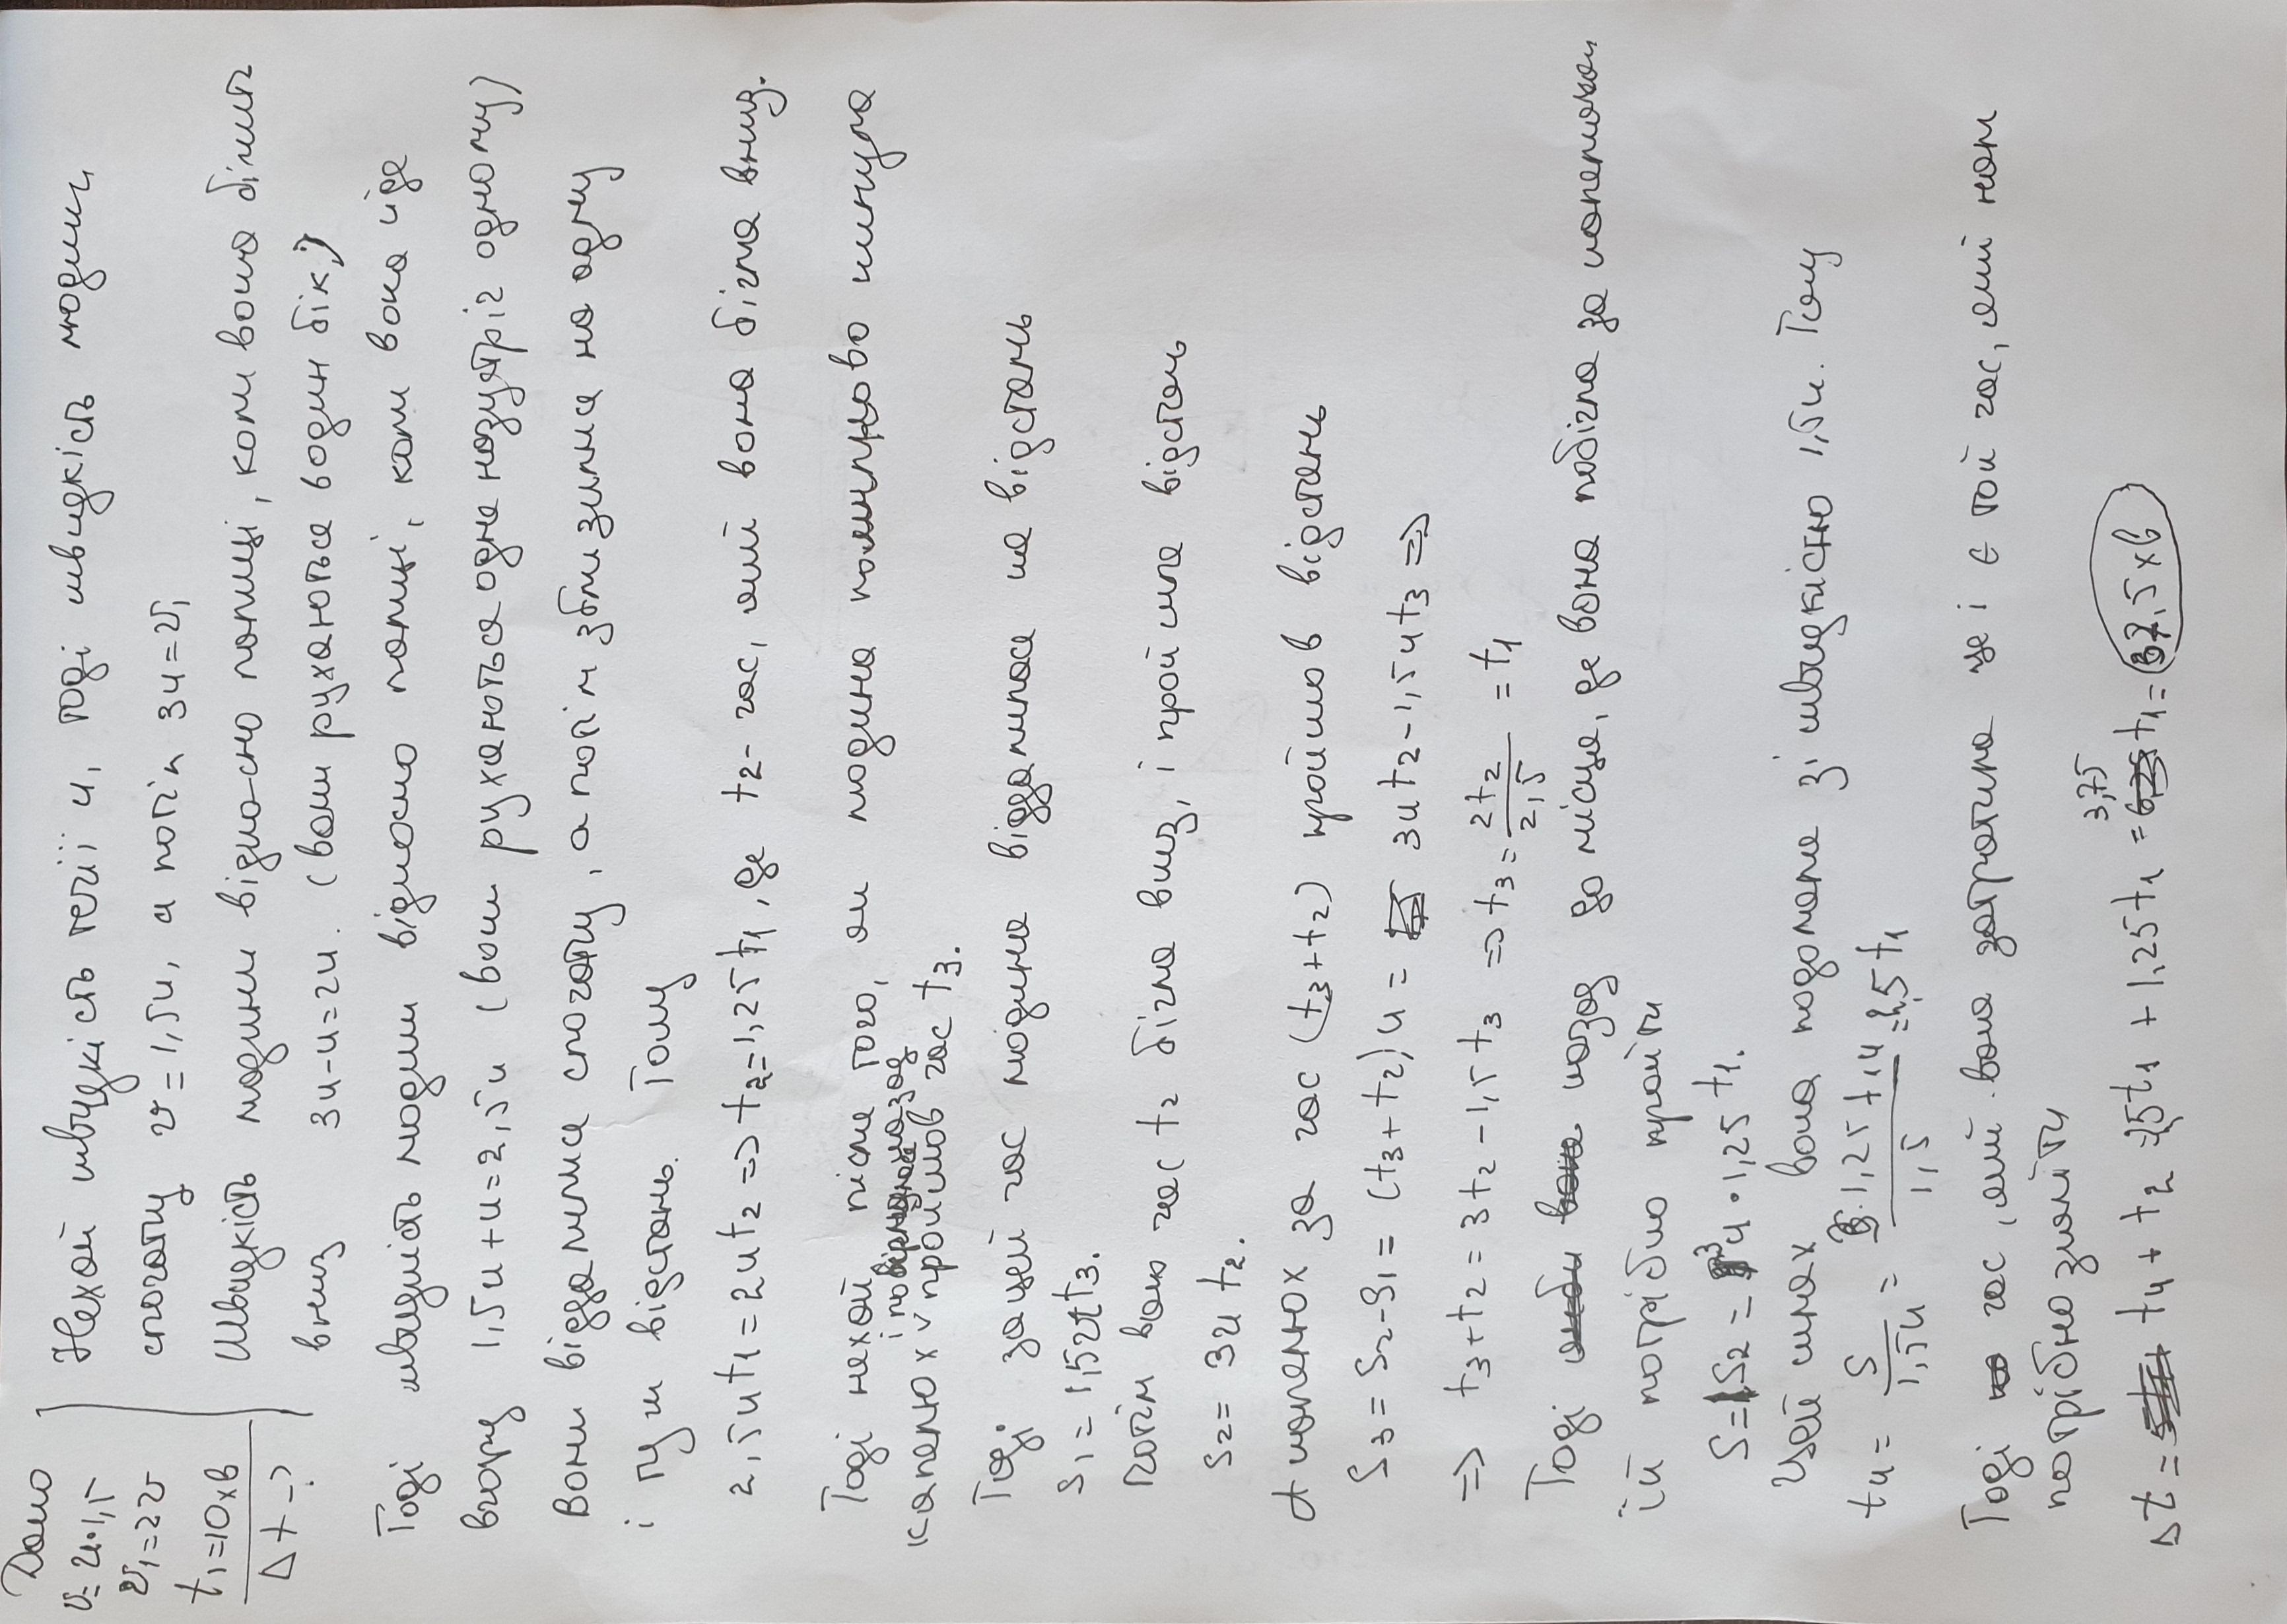 Дано
v=u·1,5
v₁=2v
t₁=10хв
Δt-?
Нехай швидкість течії u, тоді швидкість людини
спочатку v=1,5u, а потім 3u=v₁
Швидкість людини відносно палиці, коли вона біжить
вниз 3u-u=2u. (вони рухаються в один бік)
Тоді швидкість людини відносно палиці, коли вона йде
вгору 1,5u+u=2,5u (вони рухаються одна назустріч одному)
Вони віддалялися спочатку, а потім зблизилися на одну
і ту ж відстань. Тому
2,5ut₁=2ut₂ => t₂=1,25t₁, де t₂-час, який вона бігла вниз.
Тоді нехай після того, як людина помилково кинула
капелюх і повернула назад пройшов час t₃.
Тоді за цей час людина віддалилася на відстань
S₁=1,5ut₃.
Потім вона час t₂ бігла вниз, і пройшла відстань
S₂=3ut₂.
А капелюх за час (t₃+t₂) пройшов відстань
S₃=S₂-S₁=(t₃+t₂)u=3ut₂-1,5ut₃ =>
=> t₃+t₂=3t₂-1,5t₃ => t₃=2t₂/2,5=t₁
Тоді назад до місця, де вона побігла за капелюхом
їй потрібно пройти
S=S₂=3u·1,25t₁.
Цей шлях вона подолала зі швидкістю 1,5u. Тому
t₄=S/1,5u=3·1,25t₁u/1,5=2,5t₁
Тоді час, який вона затратила це і є той час, який нам
потрібно знайти
Δt=t₄+t₂=2,5t₁+1,25t₁=3,75t₁=37,5хв